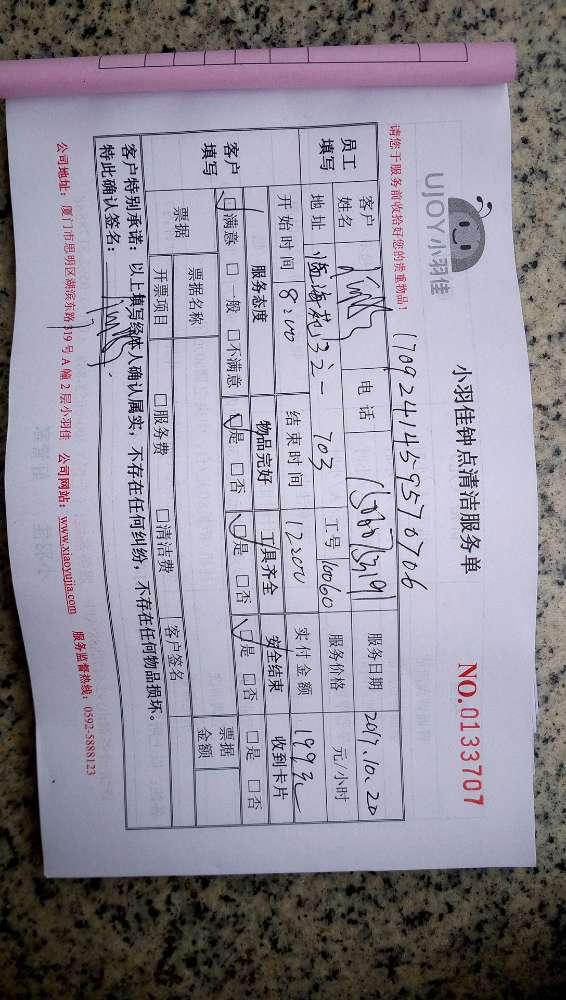 UJOY小羽佳
小羽佳钟点清洁服务单
NO.0133707
请您于服务前收拾好您的贵重物品!
1709241459570706
员工填写
客户姓名
电话
服务日期 2017.10.20
地址 703
工号 10060
服务价格 元/小时
开始时间 8:00
结束时间 12:00
实付金额 199元
客户填写
服务态度 物品完好 工具齐全 安全结束 收到卡片
☑满意 □一般 □不满意 ☑是 □否 ☑是 □否 ☑是 □否 □是 □否
票据
票据名称
票据金额
开票项目 □服务费 □清洁费 客户签名
客户特别承诺:以上填写经本人确认属实,不存在任何纠纷,不存在任何物品损坏。
特此确认签名:
公司地址:厦门市思明区湖滨东路319号A幢2层小羽佳 公司网站:www.xiaoyujia.com 服务监督热线:0592-5888123